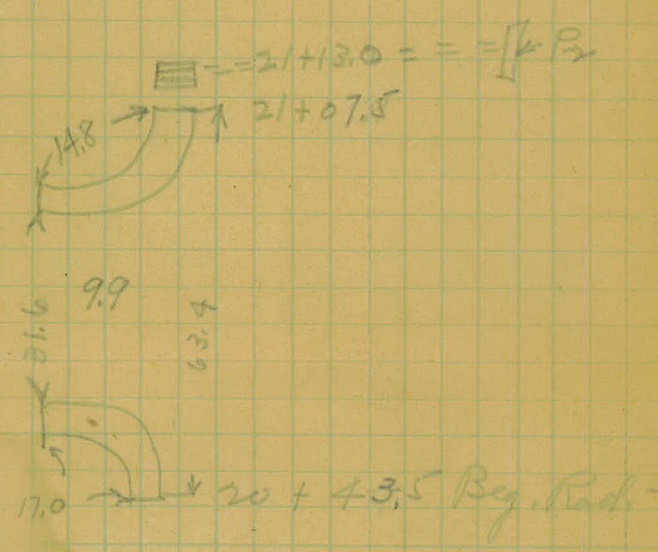 21+13.0
21+07.5
14.8
9.9
31.6
63.4
17.0
20 + 43.5 Beg. Rad.